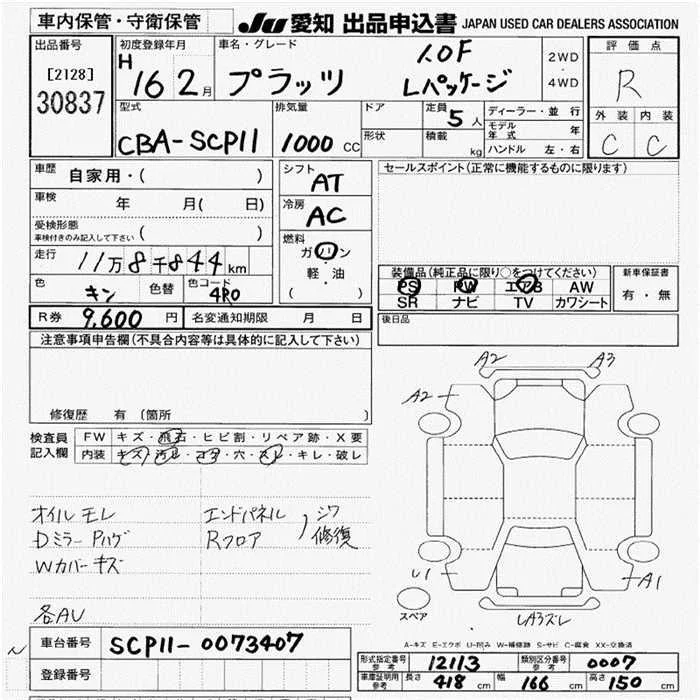 車内保管・守衛保管
JU 愛知 出品申込書 JAPAN USED CAR DEALERS ASSOCIATION
出品番号 [2128] 30837
初度登録年月 H 16 2月
車名・グレード プラッツ 1.0F Lパッケージ
2WD・4WD
評価点 R
外装 内装
C C
型式 CBA-SCP11
排気量 1000 CC
ドア
形状
定員 5人
積載 kg
ディーラー・並行
モデル年式 年
ハンドル 左・右
車歴 自家用・( )
車検 年 月( 日)
受検形態 ( )
車検付きのみ記入して下さい
走行 11万8千844km
色 キン 色替 色コード 4R0
シフト AT
冷房 AC
燃料
ガソリン
・
軽・油
( )
R券 9,600円 名変通知期限 月 日
セールスポイント(正常に機能するものに限ります)
装備品(純正品に限り○をつけてください)
PS PW エアB AW
SR ナビ TV カワシート
新車保証書
有・無
後日品
注意事項申告欄(不具合内容等は具体的に記入して下さい)
修復歴 有 (箇所 )
検査員記入欄
FW キズ・飛石・ヒビ割・リペア跡・X要
内装 キズ・汚レ・コゲ・穴・スレ・キレ・破レ
オイルモレ
Dミラー Pハゲ
Wカバーキズ
各AU
エンドパネル
Rフロア
シワ
修復
A2 A3
A2
U1 A1
LA3ズレ
スペア
A-キズ E-エクボ U-凹み W-補修跡 S-サビ C-腐食 XX-交換済
車台番号 SCP11-0073407
登録番号
形式指定番号 参考 12113
類別区分番号 参考 0007
車庫証明用 参考 長さ 418 cm 幅 166 cm 高さ 150 cm